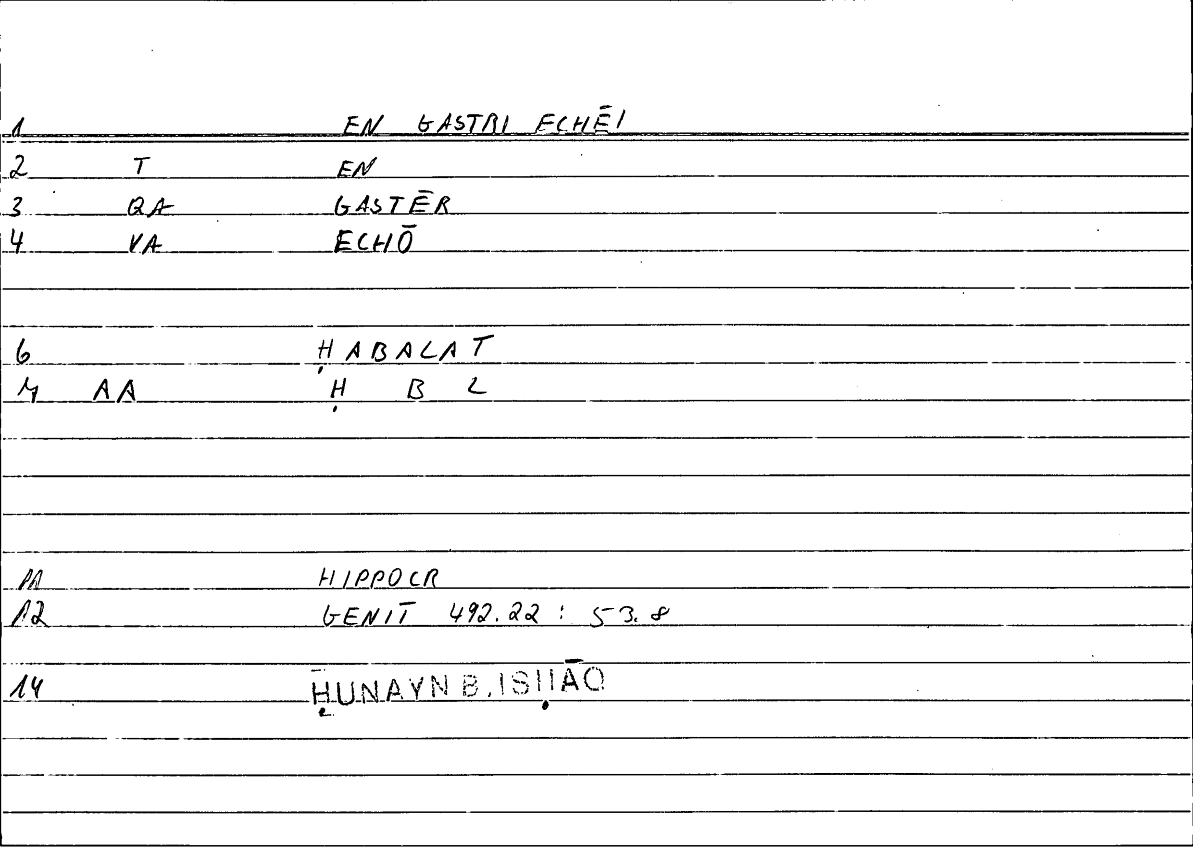 1 EN GASTRI ECHĒI
2 T EN
3 QA GASTĒR
4 VA ECHŌ
6 ḤABALAT
7 AA Ḥ B L
11 HIPPOCR
12 GENIT 492.22 : 53.8
14 ḤUNAYN B. ISḤĀQ